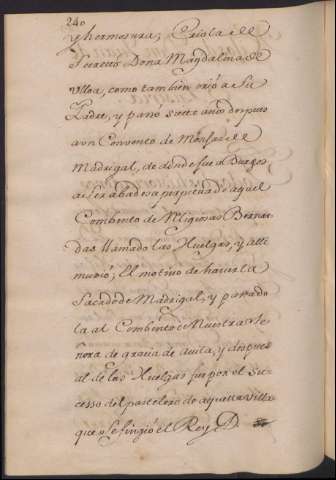 240
y hermosura; Criola de
Secreto Dona Magdalena de
Ulloa, como tambien crió a Su
Padre, y pasó siete años despues
a un Convento de Monjas de
Madrigal, de donde fue a Burgos
a Ser abadesa perpetua de aquel
Combento de Religiosas Bernar
das llamado las Huelgas, y alli
murió; El motivo de haverla
Sacado de Madrigal, y pasado
la al Combento de Nuestra Se
ñora de gracia de Avila, y despues
al de las Huelgas fue por el Su
cesso del pastelero de aquella Villa
que se fingió el Rey D.